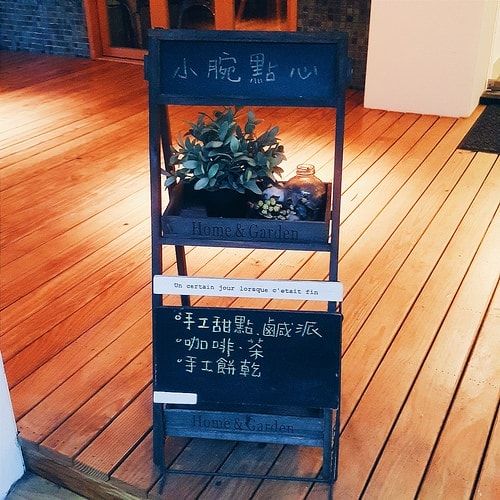 小腕點心
Home & Garden
Un certain jour lorsque c'était fini
手工甜點.鹹派
咖啡·茶
手工餅乾
Home & Garden